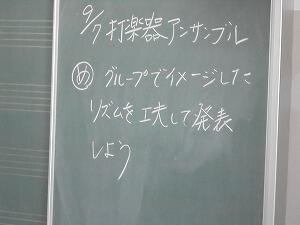 9/7 打楽器アンサンブル
め グループでイメージした
リズムを工夫して発表
しよう